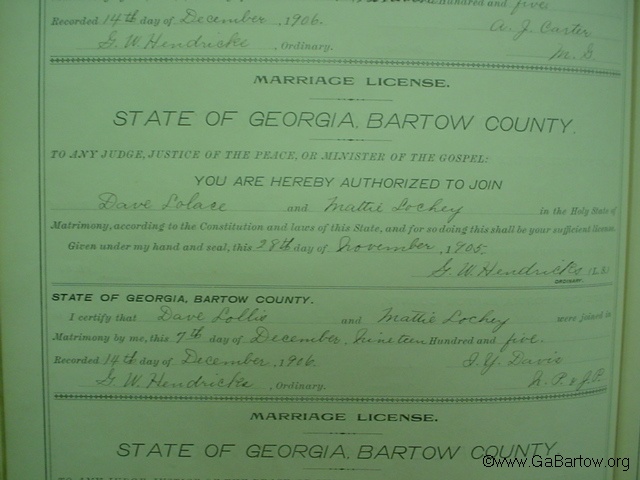 Hundred and five
Recorded 14th day of December, 1906. A. J. Carter
G. W. Hendricks, Ordinary. M. G.
MARRIAGE LICENSE.
STATE OF GEORGIA, BARTOW COUNTY.
TO ANY JUDGE, JUSTICE OF THE PEACE, OR MINISTER OF THE GOSPEL:
YOU ARE HEREBY AUTHORIZED TO JOIN
Dave Lolace and Mattie Lochey in the Holy State of
Matrimony, according to the Constitution and laws of this State, and for so doing this shall be your sufficient license.
Given under my hand and seal, this 28th day of November, 1905.
G. W. Hendricks (L.S.)
ORDINARY.
STATE OF GEORGIA, BARTOW COUNTY.
I certify that Dave Lollis and Mattie Lochey were joined in
Matrimony by me, this 7th day of December, Nineteen Hundred and five.
Recorded 14th day of December, 1906. J. Y. Davis
G. W. Hendricks, Ordinary. N. P. & J. P.
MARRIAGE LICENSE.
STATE OF GEORGIA, BARTOW COUNTY.
©www.GaBartow.org